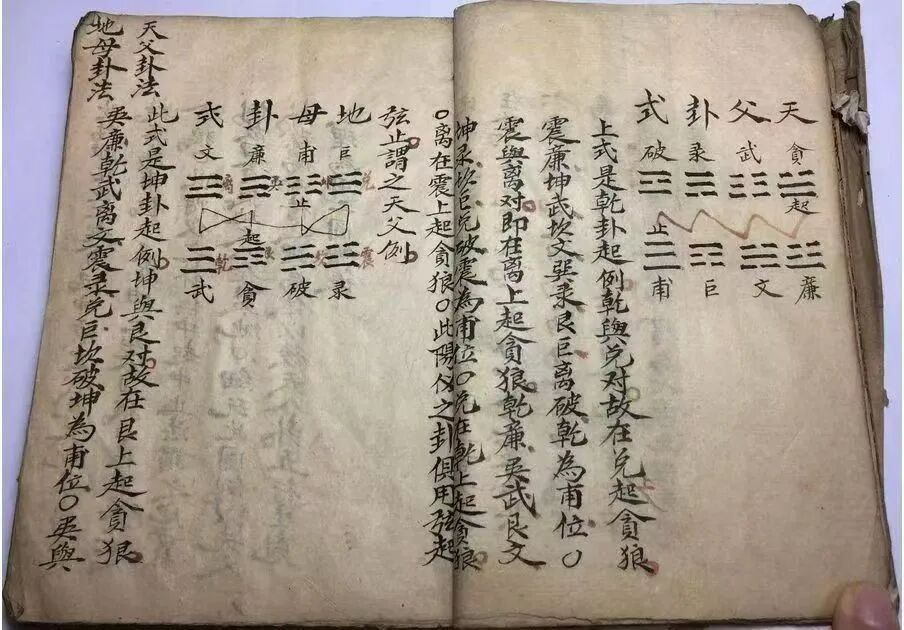 天父卦式
貪武彔破
起
止
廉文巨甫
上式是乾卦起例乾與兑对故在兑起貪狼
震廉坤武坎文巽彔艮巨离破乾為甫位〇
震與离对即在离上起貪狼乾廉巽武艮文
坤彔坎巨兑破震為甫位〇兑在乾上起貪狼
〇离在震上起貪狼〇此陽仪之卦俱用弦起
弦止謂之天父例
地母卦式
巨甫廉文
兑
止
起
震坎
乾
彔破貪武
此式是坤卦起例坤與艮对故在艮上起貪狼
巽廉乾武离文震彔兑巨坎破坤為甫位〇巽與
天父卦法
地母卦法